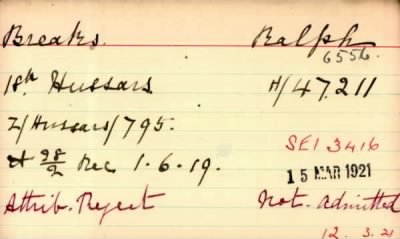 Breaks. Ralph
6556.
18th Hussars. H/47211
Z/Hussars/795.
SEI 3416
98/2 Rec 1.6.19.
15 MAR 1921
Attrib. Reject Not Admitted
12. 3. 21